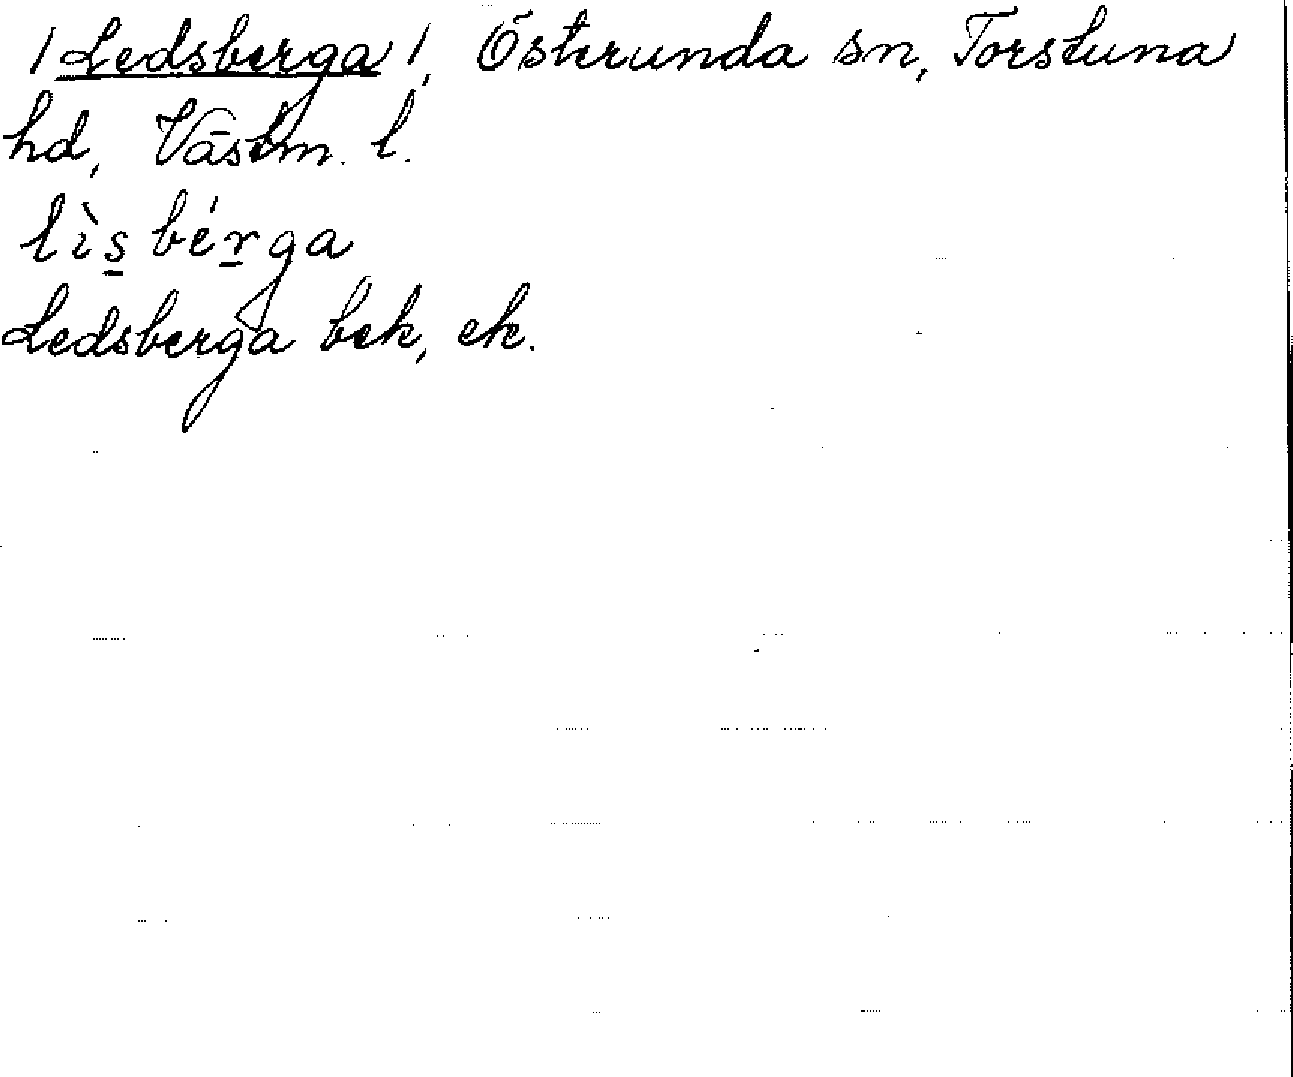 /Ledsberga/, Österunda sn, Torstuna
hd, Västm. l.
lìs̲bér̲ga
Ledsberga bek, ek.